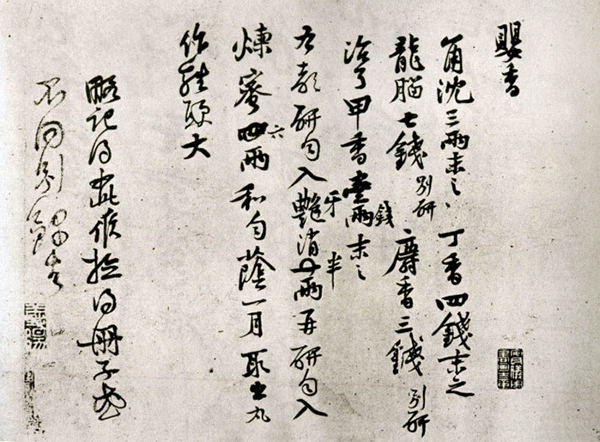 嬰香
角沈三兩末之丁香四錢末之
龍腦七錢別研麝香三錢別研
治了甲香壹兩錢末之
右都研勻入艷牙消半兩再研勻入
煉蜜四六兩和勻蔭一月取出丸
作雞頭大
略記得此候檢得冊子或
不同別錄去